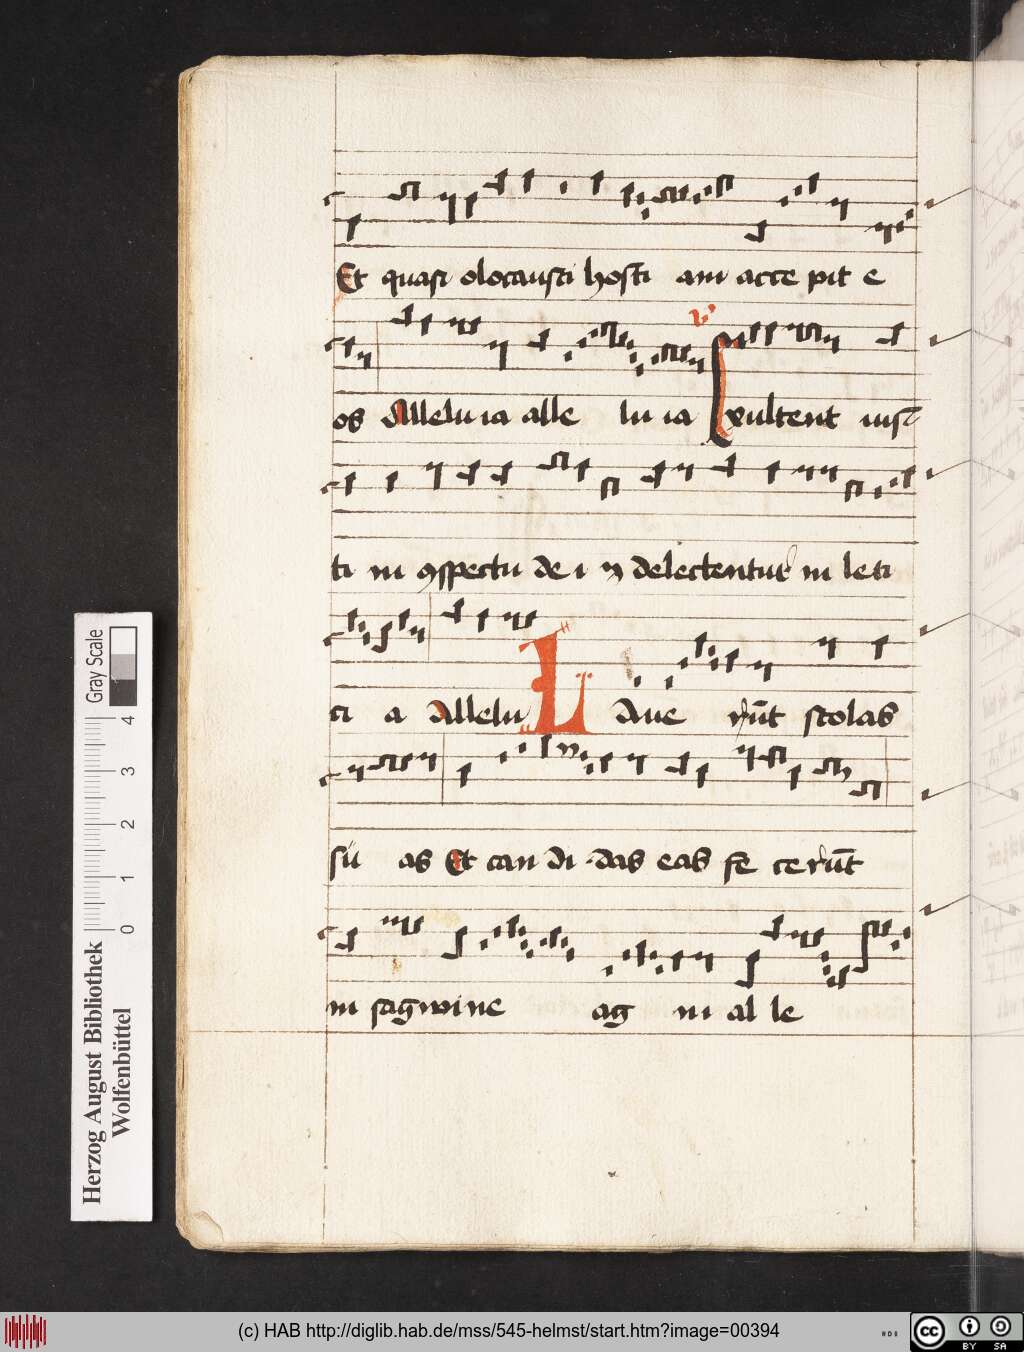 Et quasi olocausti hosti am acce pit e
v
os Alleluia alle lu ia Exultent iusti
ti in conspectu de i et delectentur in leti
ci a Allelu Lave rūt stolas
su as Et can di das eas fe cerūt
in sagwine ag ni al le
Gray Scale
0 1 2 3 4
Herzog August Bibliothek
Wolfenbüttel
(c) HAB http://diglib.hab.de/mss/545-helmst/start.htm?image=00394
cc BY SA